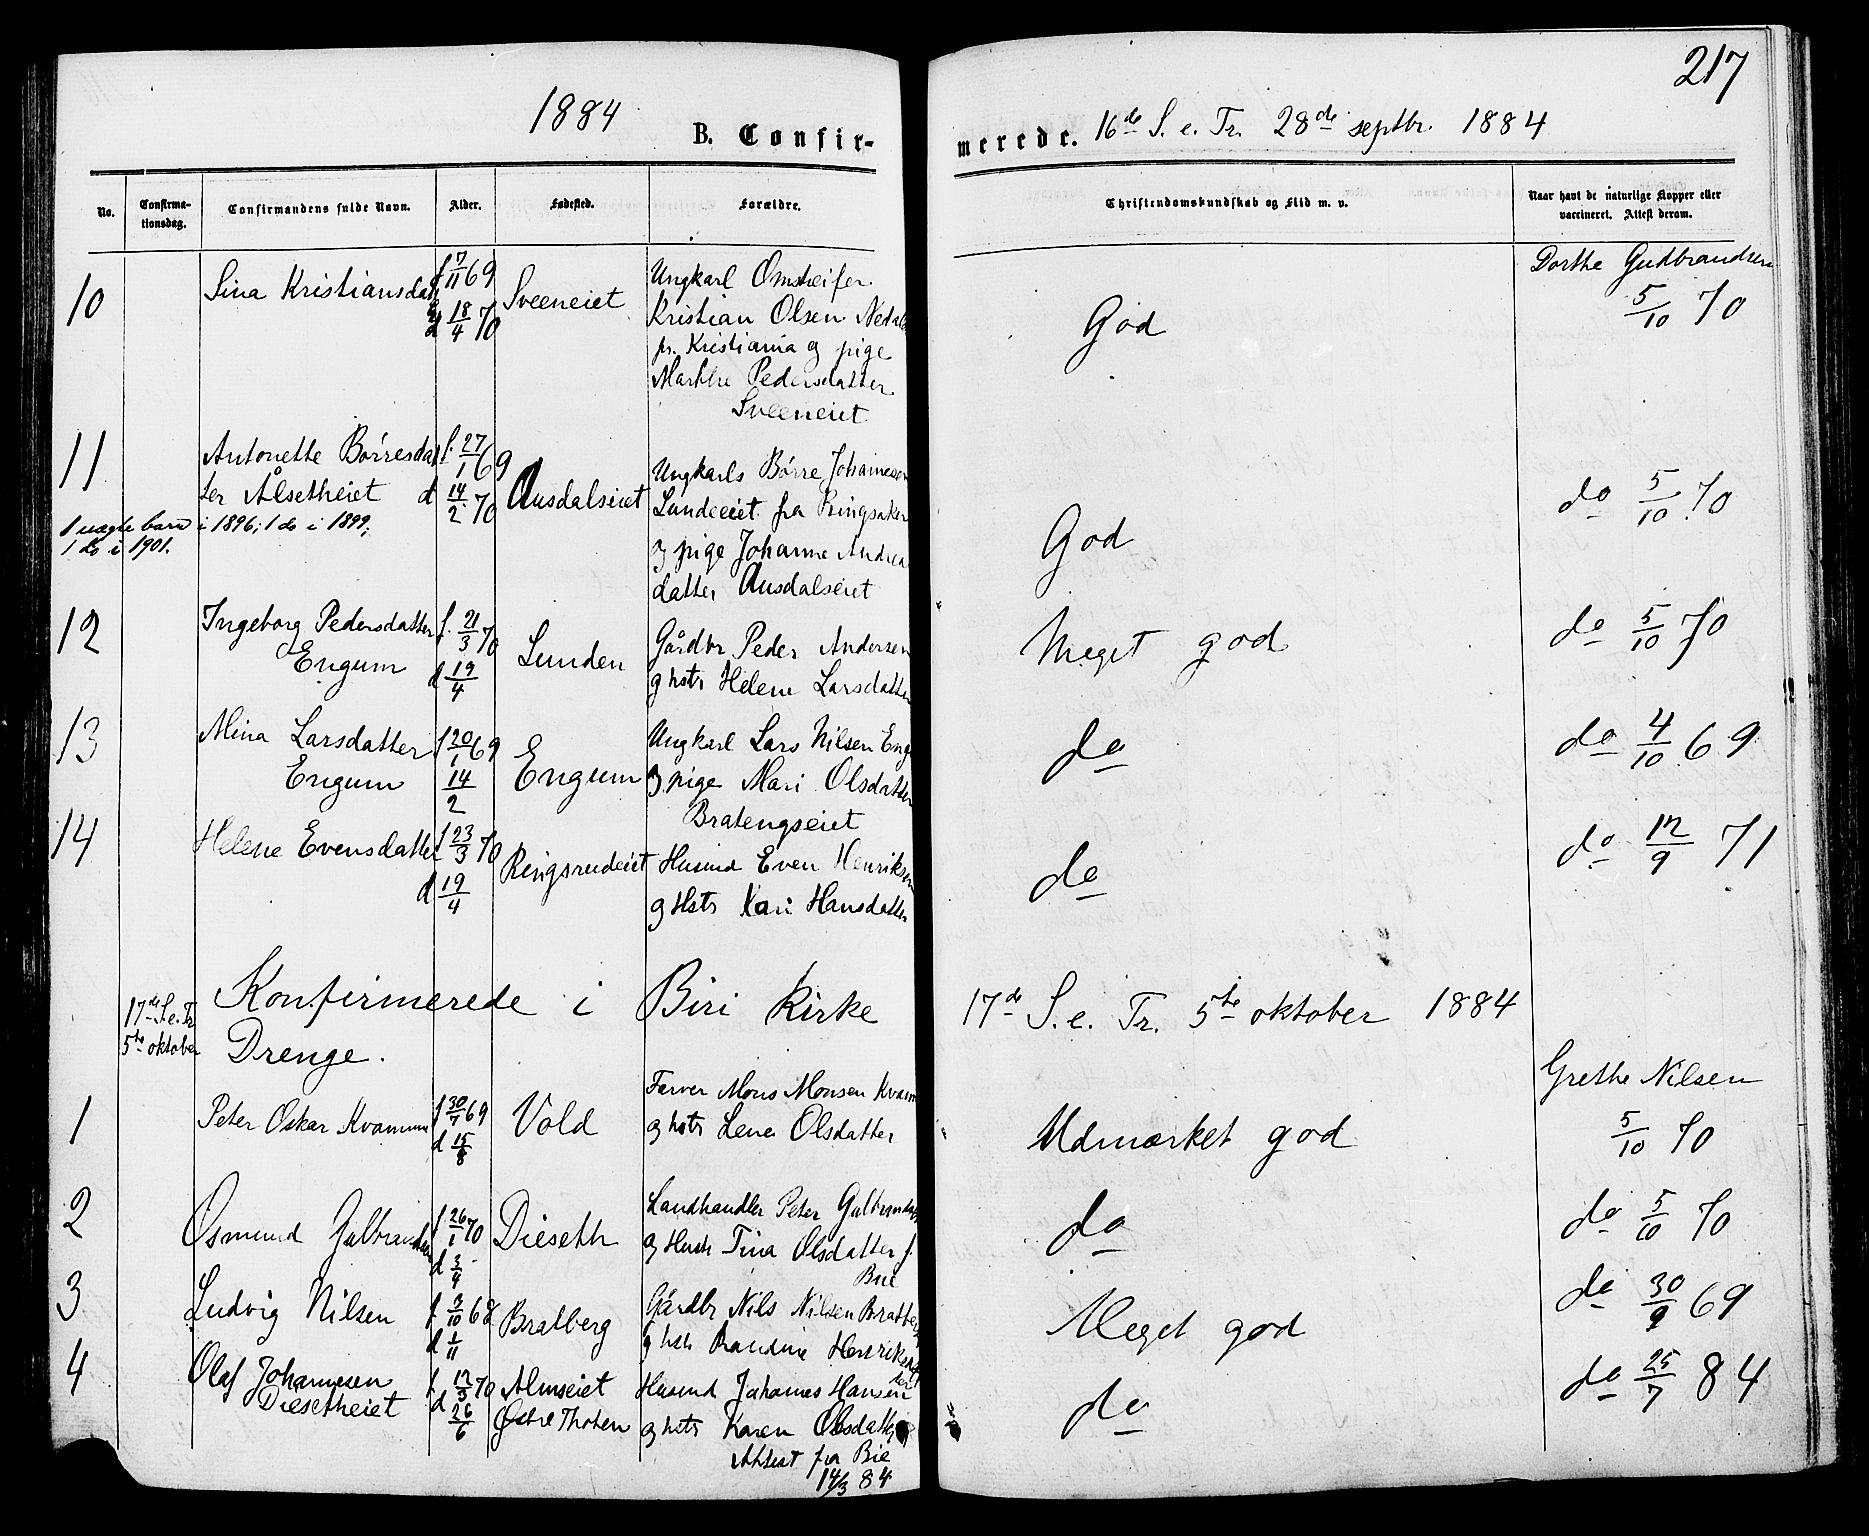 1884
217
B. Confir-
merede. 16de S. e. Tr. 28de septbr. 1884
No.
Confirma-
tionsdag.
Confirmandens fulde Navn.
Alder.
Fødested.
Forældre.
Christendomskundskab og Flid m. v.
Naar havt de naturlige Kopper eller
vaccineret. Attest derom.
10
Sina Kristiansdat
f 7/11 69
d 18/4 70
Sveeneiet
Ungkarl
Kristian Olsen
fr. Kristiania og pige
Marthe Pedersdatter
Sveeneiet
God
Dorthe Gudbrandsen
5/10 70
11
Antonette Børresdat
ter Alsetheiet
f. 27/1 69
d 14/2 70
1 uægte barn i 1896; 1 do i 1899;
1 do i 1901.
Ausdalseiet
Ungkarls Børre Johannesen
Lundeeiet fra Ringsaker
og pige Johanne Andrea
datter Ausdalseiet
God
do 5/10 70
12
Ingeborg Pedersdatter
Engum
f. 21/3 70
d 19/4
Lunden
Gårdbr Peder Andersen
og hstr Helene Larsdatter
Meget god
do 5/10 70
13
Mina Larsdatter
Engum
f 20/1 69
14/2
Engum
Ungkarl Lars Nilsen Eng
og pige Mari Olsdatter
Bratengseiet
do
do 4/10 69
14
Helene Evensdatter
f 23/3 70
d 19/4
Ringsrudeiet
Husmd Even Henriksen
og Hstr Kari Hansdatter
do
do 12/9 71
17de S. e. Tr
5te oktober
Konfirmerede i Biri Kirke
17de S. e. Tr. 5te oktober 1884
Drenge.
1
Peter Oskar Kvamme
f 30/7 69
d 15/8
Vold
Farver Mons Monsen Kvam
og hstr Lena Olsdatter
Udmærket god
Grethe Nilsen
5/10 70
2
Osmund Gulbrandsen
f 26/1 70
d 3/4
Dieseth
Landhandler Peter Gulbrandsen
og Hustr Tina Olsdatter f.
do
do 5/10 70
3
Ludvig Nilsen
d 1/11
Bratberg
Gårdbr Nils Nilsen Bratberg
og hstr Randine Henriksdat
ter
Meget god
do 30/9 69
4
Olaf Johannesen
Diesetheiet
f. 12/3 70
d 26/6
Almseiet
Østre Thoten
Husmd Johannes Hansen
og hstr Karen Olsdatter
Attest fra Bie
14/3 84
do
do 25/7 84